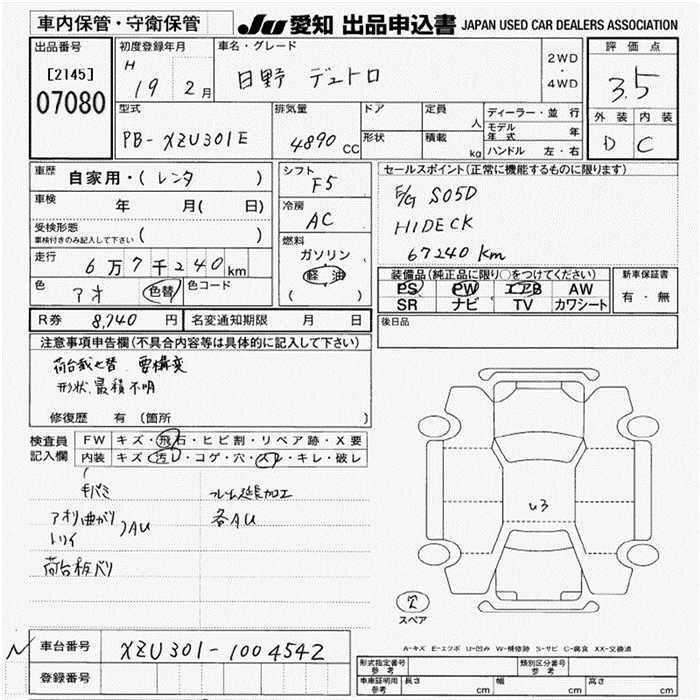 車内保管・守衛保管
JU 愛知 出品申込書 JAPAN USED CAR DEALERS ASSOCIATION
出品番号
[2145]
07080
初度登録年月
H 19 2月
車名・グレード
日野 デュトロ
2WD
・
4WD
評価点
3.5
外装 内装
D C
型式
PB-XZU301E
排気量
4890 CC
ドア
形状
定員
人
積載
kg
ディーラー・並行
モデル年式 年
ハンドル 左・右
車歴
自家用・( レンタ )
車検
年 月( 日)
受検形態
車検付きのみ記入して下さい ( )
走行
6万7千240km
色 アオ 色替 色コード
シフト
F5
冷房
AC
燃料
ガソリン
軽油
( )
セールスポイント(正常に機能するものに限ります)
E/G S05D
HIDECK
67240 Km
装備品(純正品に限り○をつけてください)
PS PW エアB AW
SR ナビ TV カワシート
新車保証書
有・無
R券 8,740 円
名変通知期限 月 日
後日品
注意事項申告欄(不具合内容等は具体的に記入して下さい)
荷台載せ替 要構変
形状、最積不明
修復歴 有 (箇所 )
検査員
記入欄
FW キズ・飛石・ヒビ割・リペア跡・X要
内装 キズ・汚レ・コゲ・穴・スレ・キレ・破レ
アオリ曲がり
AU
フレーム延長加工
各AU
U3
スペア
A-キズ E-エクボ U-凹み W-補修跡 S-サビ C-腐食 XX-交換済
N 車台番号 XZU301-1004542
登録番号
形式指定番号
参考
類別区分番号
参考
車庫証明用
参考
長さ cm 幅 cm 高さ cm